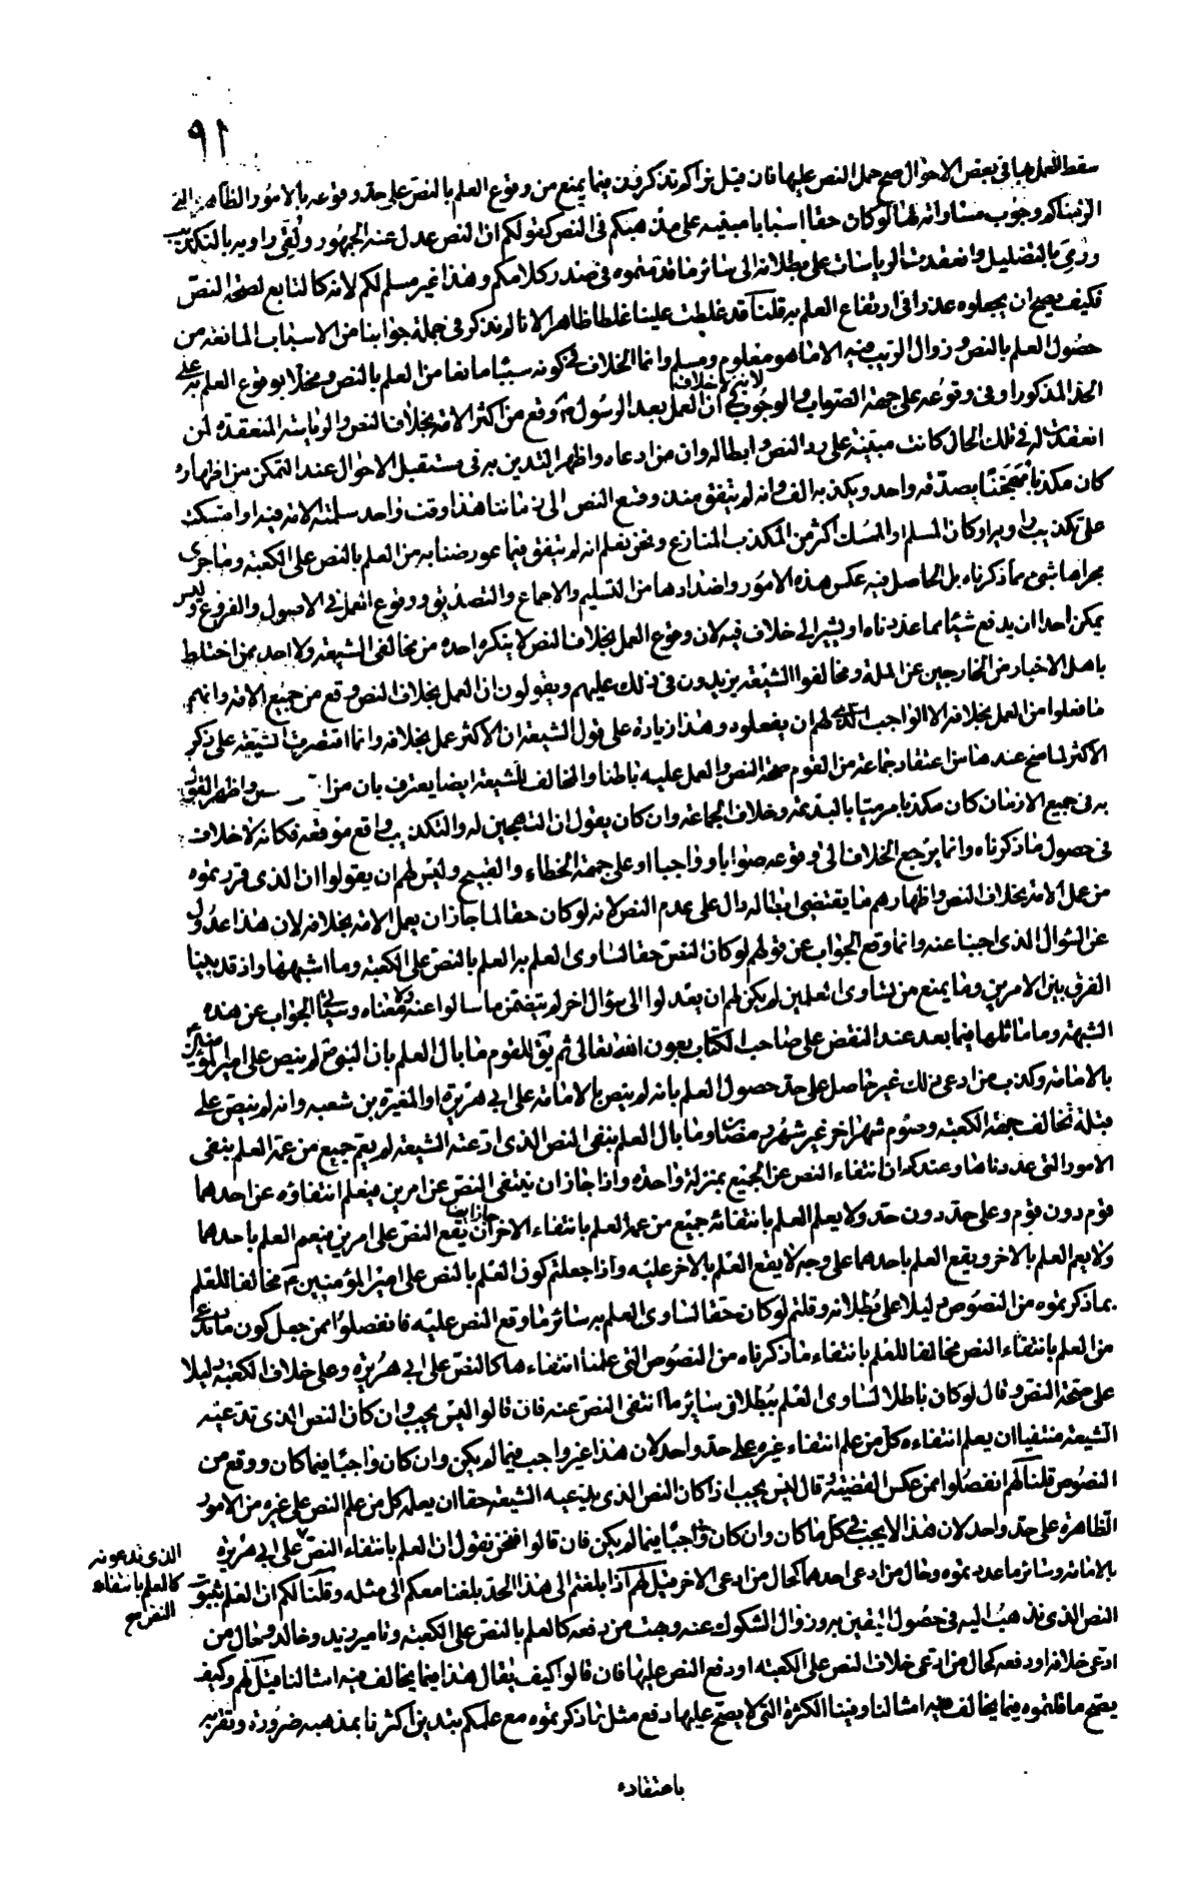 ٩١
سقط العمل بها في بعض الاحوال صح حمل النص عليها فان قيل نراكم تذكرون فيما يمنع من وقوع العلم بالنص على حد وقوعه بالامور الظاهرة التي
الزمناكم وجوب مساواته لها لو كان حقا اسبابا مبنية على مذهبكم في النص كقولكم ان النص عدل عنه الجمهور ولقي راويه بالتكذيب
ورمي بالتضليل وانعقدت الرياسات على بطلانه الى سائر ما قدمتموه في صدر كلامكم وهذا غير مسلم لكم لانه كالتابع لصحة النص
فكيف يصح ان يجعلوه عذرا في ارتفاع العلم به قلنا قد غلطت علينا غلطا ظاهرا لانا لم نذكر في جملة جوابنا من الاسباب المانعة من
حصول العلم بالنص وزوال الريب فيه الا ما هو معلوم ومسلم وانما الخلاف في كونه سببا مانعا من العلم بالنص ومخلا بوقوع العلم به على
الحد المذكور او في وقوعه على جهة الصواب والوجوب لانه لا خلاف في ان العمل بعد الرسول ص وقع من اكثر الامة بخلاف النص والرياسة المنعقدة لمن
انعقدت له في تلك الحال كانت مبنية على رد النص وابطاله وان من ادعاه واظهر التدين به في مستقبل الاحوال عند التمكن من اظهاره
كان مكذبا مهجنا يصدقه واحد ويكذبه الف وانه لم يتفق منذ وقع النص الى زماننا هذا وقت واحد سلمته الامة فيه او امسكت
على تكذيب راويه او كان المسلم او الممسك اكثر من المكذب المنازع ونحن نعلم انه لم يتفق فيما عورضنا به من العلم بالنص على الكعبة وما جرى
مجراها شيء مما ذكرناه بل الحاصل فيه عكس هذه الامور واضدادها من التسليم والاجماع والتصديق ووقوع العمل في الاصول والفروع وليس
يمكن احدا ان يدفع شيئا مما عددناه او يشير الى خلاف فيه لان وقوع العمل بخلاف النص لا ينكره احد من مخالفي الشيعة ولا احد ممن اختلط
باهل الاخبار من الخارجين عن الملة ومخالفوا الشيعة يزيدون في ذلك عليهم ويقولون ان العمل بخلاف النص وقع من جميع الامة وانهم
ما فعلوا من العمل بخلافه الا الواجب الذي لهم ان يفعلوه وهذا زيادة على قول الشيعة ان الاكثر عمل بخلافه وانما اقتصرت الشيعة على ذكر
الاكثر لما صح عندها من اعتقاد جماعة من القوم صحة النص والعمل عليه باطنا والمخالف للشيعة ايضا يعترف بان من واظهر القول
به في جميع الازمان كان مكذبا مرميا بالبدعة وخلاف الجماعة وان كان يقول ان التهجين له والتكذيب واقع موقعه فكانه لا خلاف
في حصول ما ذكرناه وانما يرجع الخلاف الى وقوعه صوابا وواجبا او على جهة الخطاء والقبيح وليس لهم ان يقولوا ان الذي قررتموه
من عمل الامة بخلاف النص واظهارهم ما يقتضي ابطاله دال على عدم النص لانه لو كان حقا لما جاز ان يعمل الامة بخلافه لان هذا عدول
عن السؤال الذي اجبنا عنه وانما وقع الجواب عن قولهم لو كان النص حقا لساوى العلم به العلم بالنص على الكعبة وما اشبهها واذ قد بينا
الفرق بين الامرين وما يمنع من تساوي العلمين لم يكن لهم ان يعدلوا الى سؤال اخر لم يتضمن ما سالوا عنه ولا معناه وسيأتي الجواب عن هذه
الشبهة وما ماثلها فيما بعد عند النقض على صاحب الكتاب بعون الله تعالى ثم يق للقوم ما بال العلم بان النبي ص لم ينص على امير المؤمنين ع
بالامامة وكذب من ادعى ذلك غير حاصل على حد حصول العلم بانه لم ينص بالامامة على ابي هريرة او المغيرة بن شعبه وانه لم ينص على
قبلة تخالف جهة الكعبة وصوم شهر اخر غير شهر رمضان وما بال العلم بنفي النص الذي ادعته الشيعة لم يعم جميع من عمه العلم بنفي
الامور التي عددناها وعندكم ان انتفاء النص عن الجميع بمنزلة واحدة واذا جاز ان ينتفي النص عن امرين فيعلم انتفاؤه عن احدهما
قوم دون قوم وعلى حد دون حد ولا يعلم العلم بانتفائه جميع من عمه العلم بانتفاء الاخر جاز ايضا ان يقع النص على امرين فيعم العلم باحدهما
ولا يعم العلم بالاخر ويقع العلم باحدهما على وجه لا يقع العلم بالاخر عليه واذا جعلتم كون العلم بالنص على امير المؤمنين ع مخالفا للعلم
بما ذكرتموه من النصوص دليلا على بطلانه وقلتم لو كان حقا لساوى العلم به سائر ما وقع النص عليه فانفصلوا ممن جعل كون ما تدعى
من العلم بانتفاء النص مخالفا للعلم بانتفاء ما ذكرناه من النصوص التي علمنا انتفاءها كالنص على ابي هريرة وعلى خلاف الكعبة دليلا
على صحة النص وقال لو كان باطلا لساوى العلم ببطلانه سائر ما انتفى النص عنه فان قالوا ليس يجب وان كان النص الذي تدعيه
الشيعة منتفيا ان يعلم انتفاءه كل من علم انتفاء غيره على حد واحد لان هذا غير واجب فيما لم يكن وان كان واجبا فيما كان ووقع من
النصوص قلنا لهم انفصلوا ممن عكس القضية وقال ليس يجب اذا كان النص الذي يدعيه الشيعة حقا ان يعلمه كل من علم النص على غيره من الامور
الظاهرة على حد واحد لان هذا لا يجب في كل ما كان وان كان واجبا فيما لم يكن فان قالوا فنحن نقول ان العلم بانتفاء النص على ابي هريرة
الذي ندعونه
كالعلم بانتفاء
النص مع
بالامامة وسائر ما عددتموه وحال من ادعى احدهما كحال من ادعى الاخر قيل لهم اذا بلغتم الى هذا الحد بلغنا معكم الى مثله وقلنا لكم ان العلم بثبوت
النص الذي نذهب اليه في حصول اليقين به وزوال الشكوك عنه وبهت من دفعه كالعلم بالنص على الكعبة وتامير زيد وخالد وحال من
ادعى خلافه او دفعه كحال من ادعى خلاف النص على الكعبة او دفع النص عليها فان قالوا كيف يقال هذا فيما يخالف فيه امثالنا قيل لهم وكيف
يصح ما قلتموه فيما يخالف فيه امثالنا وفينا الكثرة التي لا يصح عليها دفع مثل ما ذكرتموه مع علمكم بتدين اكثرنا بمذهبه ضرورة وتقربه
باعتقاده